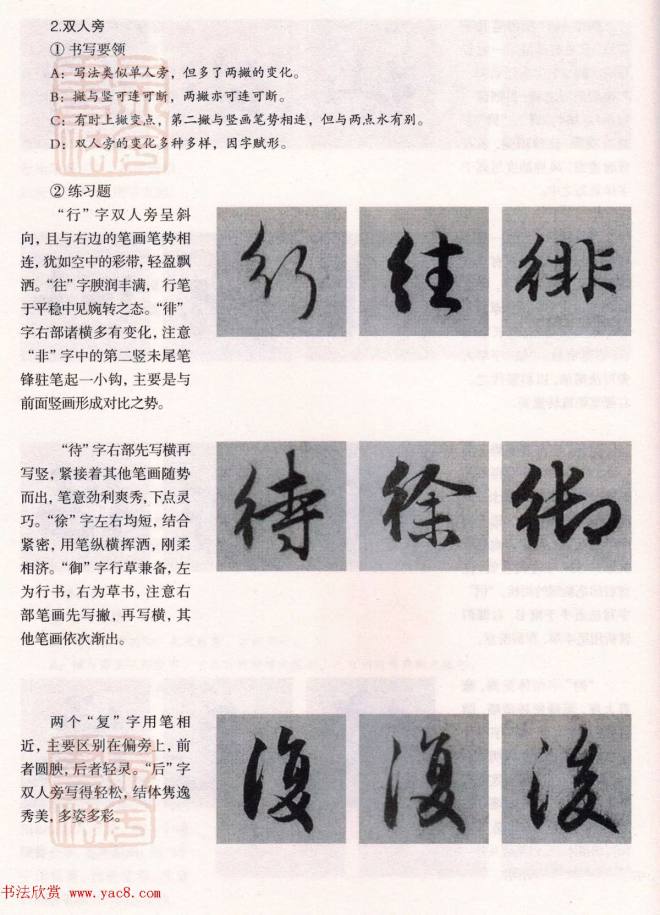 2.双人旁
① 书写要领
A：写法类似单人旁，但多了两撇的变化。
B：撇与竖可连可断，两撇亦可连可断。
C：有时上撇变点，第二撇与竖画笔势相连，但与两点水有别。
D：双人旁的变化多种多样，因字赋形。
② 练习题
“行”字双人旁呈斜
向，且与右边的笔画笔势相
连，犹如空中的彩带，轻盈飘
洒。“往”字腴润丰满，行笔
于平稳中见婉转之态。“徘”
字右部诸横多有变化，注意
“非”字中的第二竖未尾笔
锋驻笔起一小钩，主要是与
前面竖画形成对比之势。
行 往 徘
“待”字右部先写横再
写竖，紧接着其他笔画随势
而出，笔意劲利爽秀，下点灵
巧。“徐”字左右均短，结合
紧密，用笔纵横挥洒，刚柔
相济。“御”字行草兼备，左
为行书，右为草书，注意右
部笔画先写撇，再写横，其
他笔画依次渐出。
待 徐 御
两个“复”字用笔相
近，主要区别在偏旁上，前
者圆腴，后者轻灵。“后”字
双人旁写得轻松，结体隽逸
秀美，多姿多彩。
復 復 後
书法欣赏 www.yac8.com